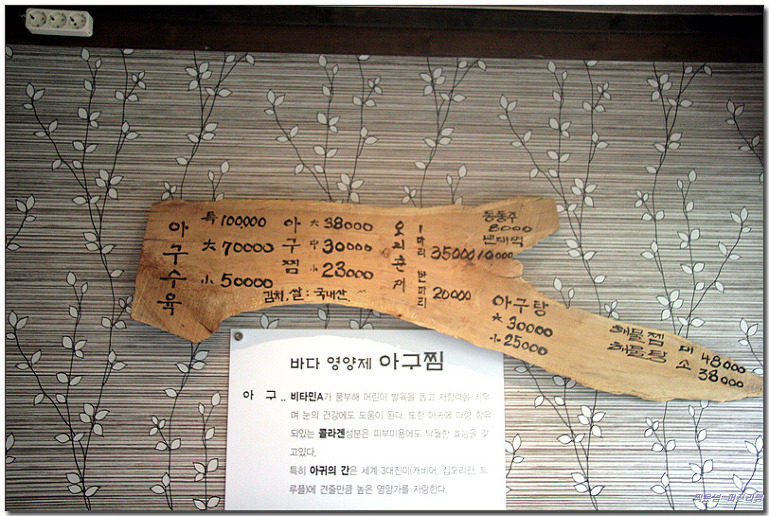 아구수육
특 100,000
大 70000
小 50000
아구찜
大 38000
中 30000
小 23000
김치, 쌀 : 국내산
오리훈제
1마리 35000
반마리 20000
동동주
8000
빈대떡
10000
아구탕
大 30000
小 25000
해물찜 대 48000
해물탕 소 38000
바다 영양제 아구찜
아 구 .. 비타민A가 풍부해 어린이 발육을 돕고 저항력을 키우
며 눈의 건강에도 도움이 된다. 또한 아귀에 다량 함유
되있는 콜라겐성분은 피부미용에도 탁월한 효능을 갖
고있다.
특히 아귀의 간은 세계 3대진미(캐비어, 집오리간, 트
루플)에 견줄만큼 높은 영양가를 자랑한다.